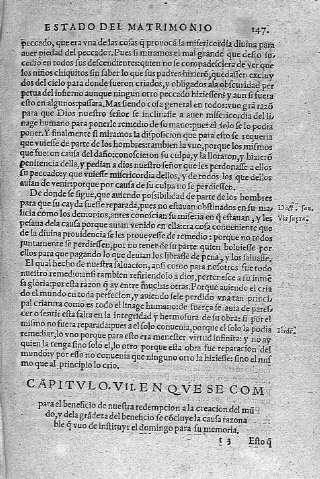 ESTADO DEL MATRIMONIO 147.
peccado, que era vna de las cosas q̃ prouocã la misericordia diuina para
auer piedad del peccador. Pues si miramos el mal grande que desto su-
cedio en todos sus descendientes: quien no se compadesciera de ver que
los niños chiquitos sin saber lo que sus padres hizierõ, quedassen excluy
dos del cielo para donde fueron criados, y obligados a la obscuridad per
petua del infierno aunque ningun otro peccado hiziessen? y aun si fuera
esto en algunos: passara, Mas siendo cosa general en todos: vue grã razõ
para que Dios nuestro señor se inclinasse a auer misericordia del li
nage humano para ponerle remedio de su mano: pues el solo se lo podia
poner. Y finalmente si miramos la disposicion que para esto se requeria
que vuiesse de parte de los hombres: tambien la vue, porque los mismos
que fueron causa del daño: conoscieron su culpa, y la lloraron, y hizierõ
penitencia della, y pedian a dios nuestro señor que les perdonasse a ellos
su peccado: y que vuiesse misericordia dellos, y de todos los que dellos
auian de venir: porque por causa de su culpa no se perdiessen.
De donde se sigue, que auiendo possibilidad de parte de los hombres
para que su cayda fuesse reparada, pues no estauan obstinados en su ma
licia cómo los demonios, antes conoscian su miseria en q̃ estauan, y les
pesaua de la causa porque auian venido en ella: era cosa conueniente que
de la diuina prouidencia se les proueyesse de remedio: porque no todos
juntamente se perdiessen, por no tener de su parte quien boluiesse por
ellos para que pagando lo que deuian los librasse de pena, y los saluasse,
El qual hecho de nuestra saluacion, ansi como para nosotros fue todo
nuestro remedio: ansi tambien refiriendolo a dios, pertenesce a su inmẽ
sa gloria: por esta razon q̃ ay entre muchas otras. Porque auiendo el cria
do el mundo en toda perfecion, y auiendo se le perdido vna tan princi
pal criatura como es todo el linage humano: de fuerça se auia de pares-
cer o sentir esta falta en la integridad y hermosura de su obra: si por el
mismo no fuera reparada: pues a el solo conuenia, porque el solo la podia
remediar, lo vno porque para esto era menester virtud infinita: y no ay
quien la tenga sino solo el, lo otro porque esta obra fue reparacion del
mundo: y por esso no conuenia que ninguno otro la hiziesse: sino el mis
mo que al principio lo crio.
CAPITVLO. VII. EN QVE SE COM
para el beneficio de nuestra redempcion a la creacion del mũ
do, y de la grãdeza del beneficio se cõcluye la causa razona
ble q̃ vuo de instituyr el domingo para su memoria,
t 3 Esto q̃